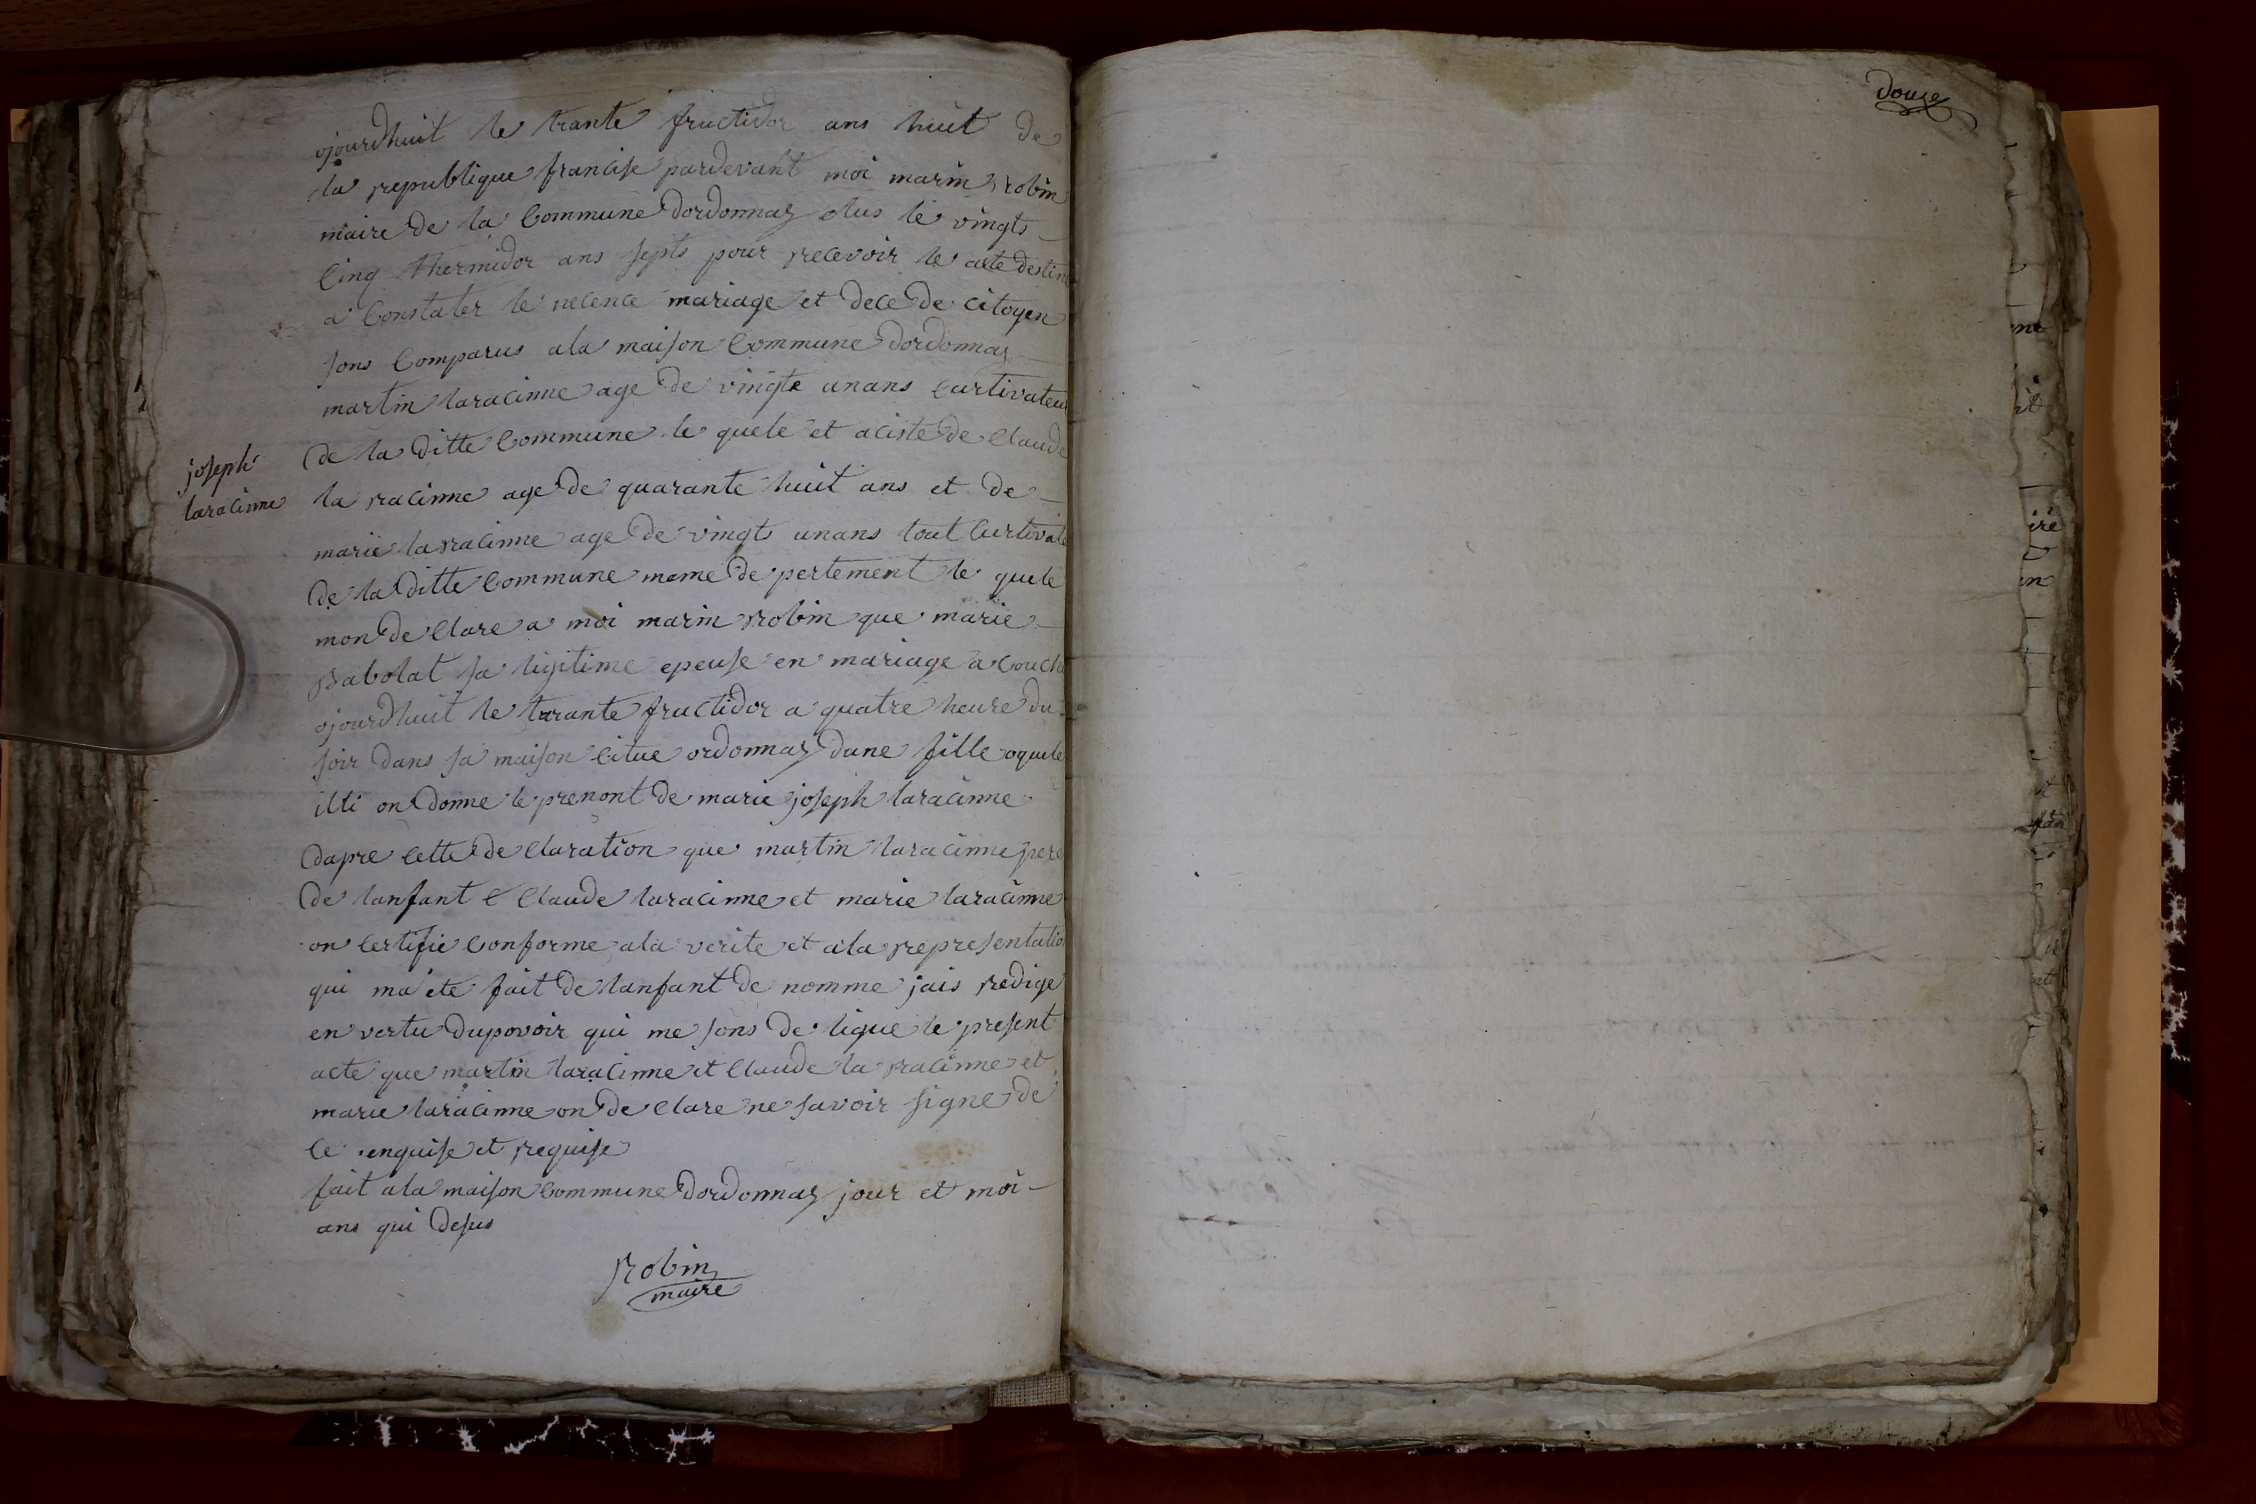 ojourdhuit le trante fructidor ans huit de
la republique francise pardevant moi marin robin
maire de la Commune dordonnaz elus le vingts
Cinq thermidor ans septs pour recevoir le acte destine
a Constater le necence mariage et dece de citoyen
sons Comparus a la maison Commune dordonnaz
martin laracinne age de vingte unans Curtivateu
de la ditte Commune le quele et aciste de Claude
joseph
laracinne
la racinne age de quarante huit ans et de
marie laracinne age de vingts unans tout Curtivate
de la ditte Commune mame de pertement le quele
mon de Clare a moi marin robin que marie
rabolat sa ligitime epeuse en mariage a Couche
ojourdhuit le trante fructidor a quatre heure du
soir dans sa maison Citue ordonnaz dune fille oquele
ilti on donne le prenont de marie joseph laracinne
dapre Cette de Claration que martin laracinne pere
de lanfant C Claude laracinne et marie laracinne
on Certifie Conforme a la verite et a la representatio
qui ma ete fait de lanfant de nomme jais redige
en vertu dupovoir qui me sons de ligue le present
acte que martin laracinne et Claude la racinne et
marie laracinne on de Clare ne savoir signe de
Ce enquise et requise
fait a la maison Commune dordonnaz jour et moi
ans qui desus
robin
maire
douze